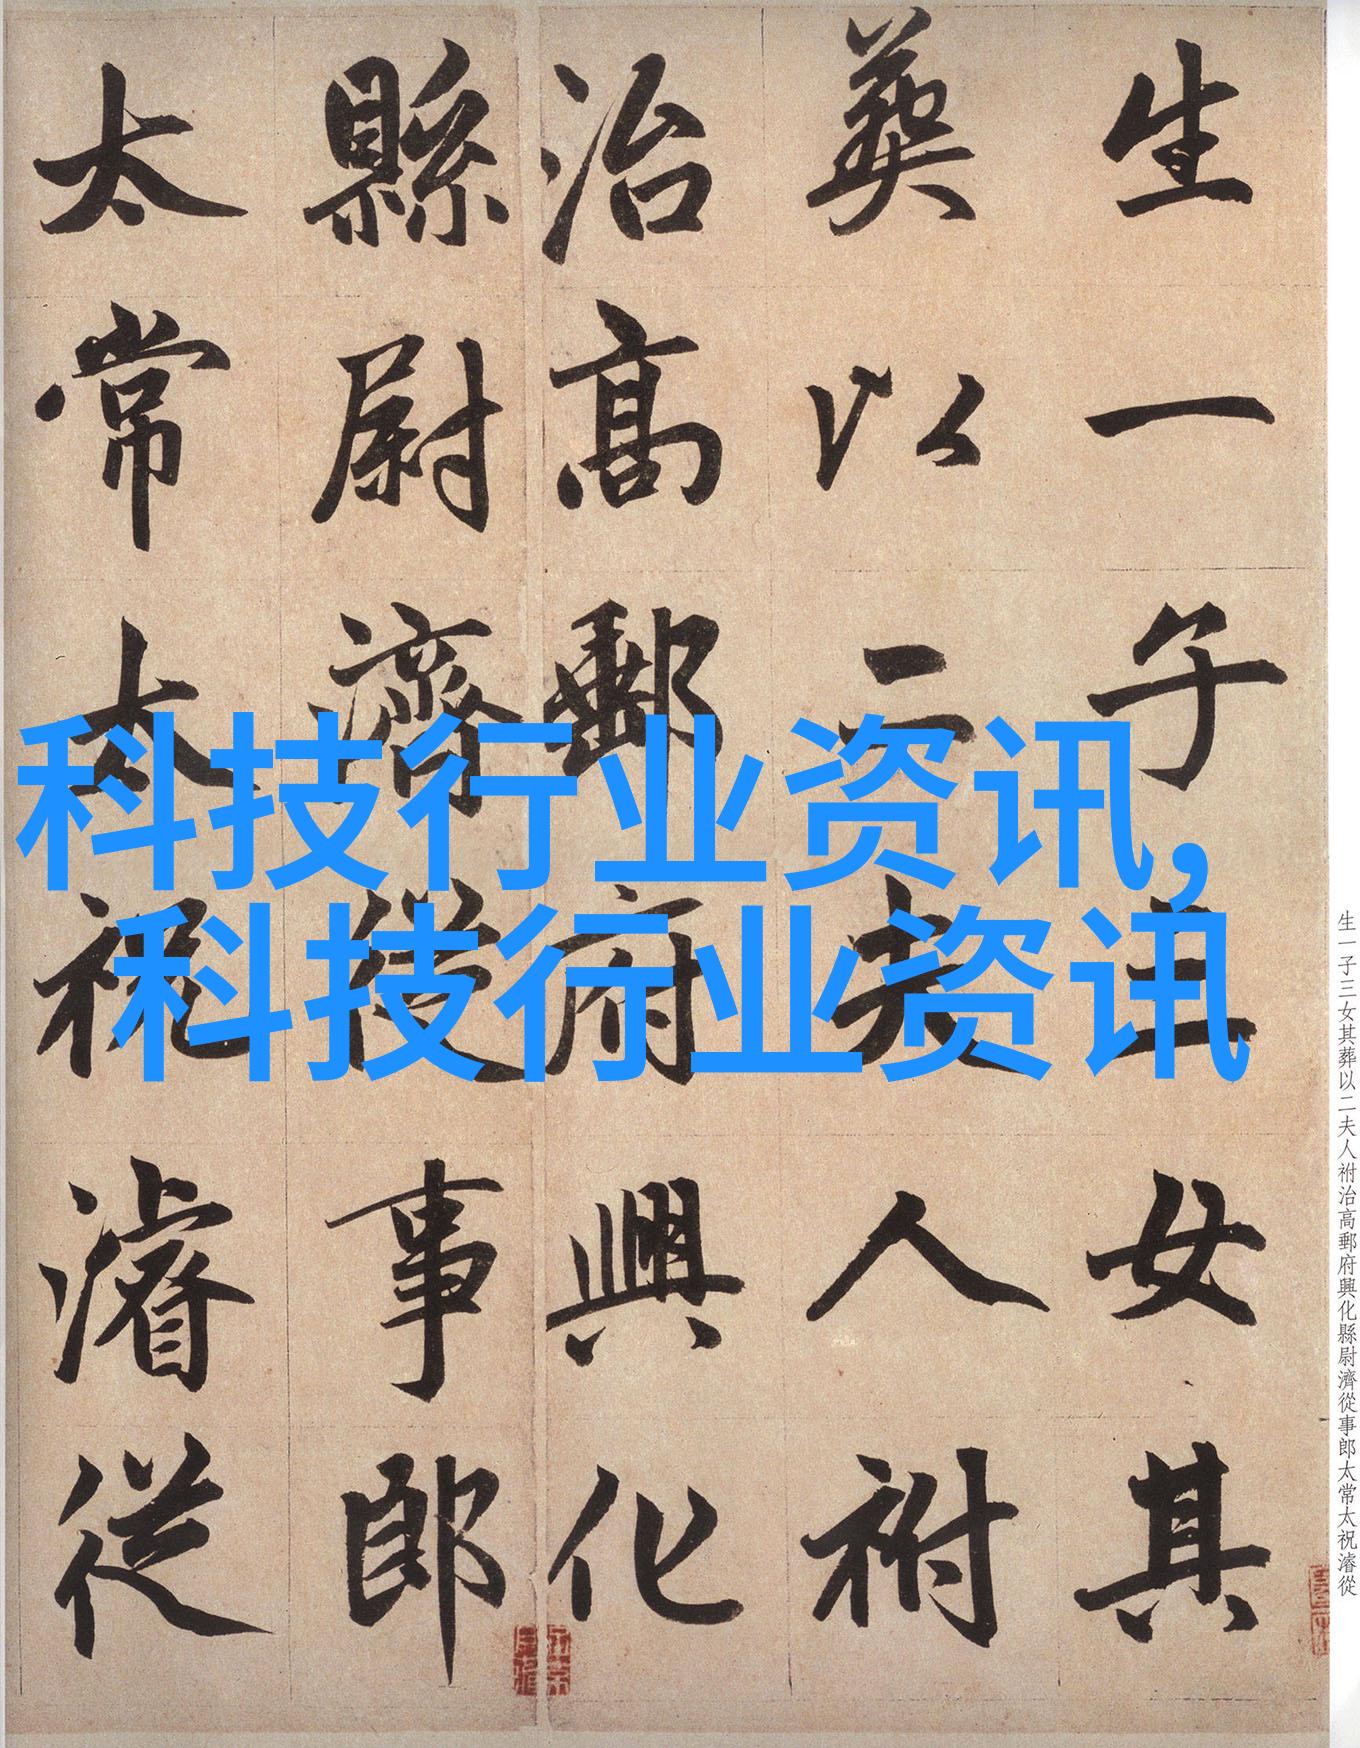 科技行业资讯,
科技行业资讯
生一子三女其
葬以二夫人祔
治高郵府興化
縣尉濟從事郎
太常太祝濬從
生一子三女其葬以二夫人祔治高郵府興化縣尉濟從事郎太常太祝濬從